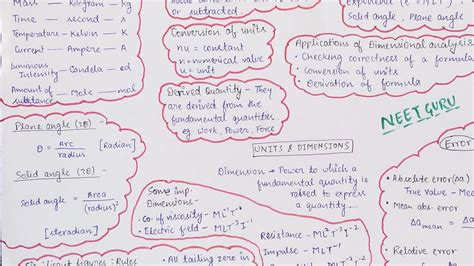 Mass — kilogram — kg
Time — second — s
Temperature — Kelvin — K
Current — Ampere — A
Luminous
Intensity — Candela — cd
Amount of — Mole — mol
substance
or subtracted.
Conversion of units
nu = constant
n = numerical value
u = unit
Derived Quantity - They
are derived from the
fundamental quantities
eg work, Power, Force
Solid angle, Plane angle
Applications of Dimensional analysis
• Checking correctness of a formula
• Conversion of units
• Derivation of formula
NEET GURU
Plane angle (2θ) -
θ = Arc [Radian]
radius
Solid angle (3θ) -
Solid angle = Area
(radius)²
[steradian]
UNITS & DIMENSIONS
Dimension → Power to which a
fundamental quantity is
raised to express
a quantity.
Some imp.
Dimensions -
• Co. of viscosity - ML⁻¹T⁻¹
• Electric field - MLT⁻³I⁻¹
Resistance - ML²T⁻³I⁻²
Impulse - MLT⁻¹
Error
• Absolute error (Δa)
True value - Mea
• Mean abs. error
Δamean =
• Relative error
Significant figures: Rules
• All tailing zero in